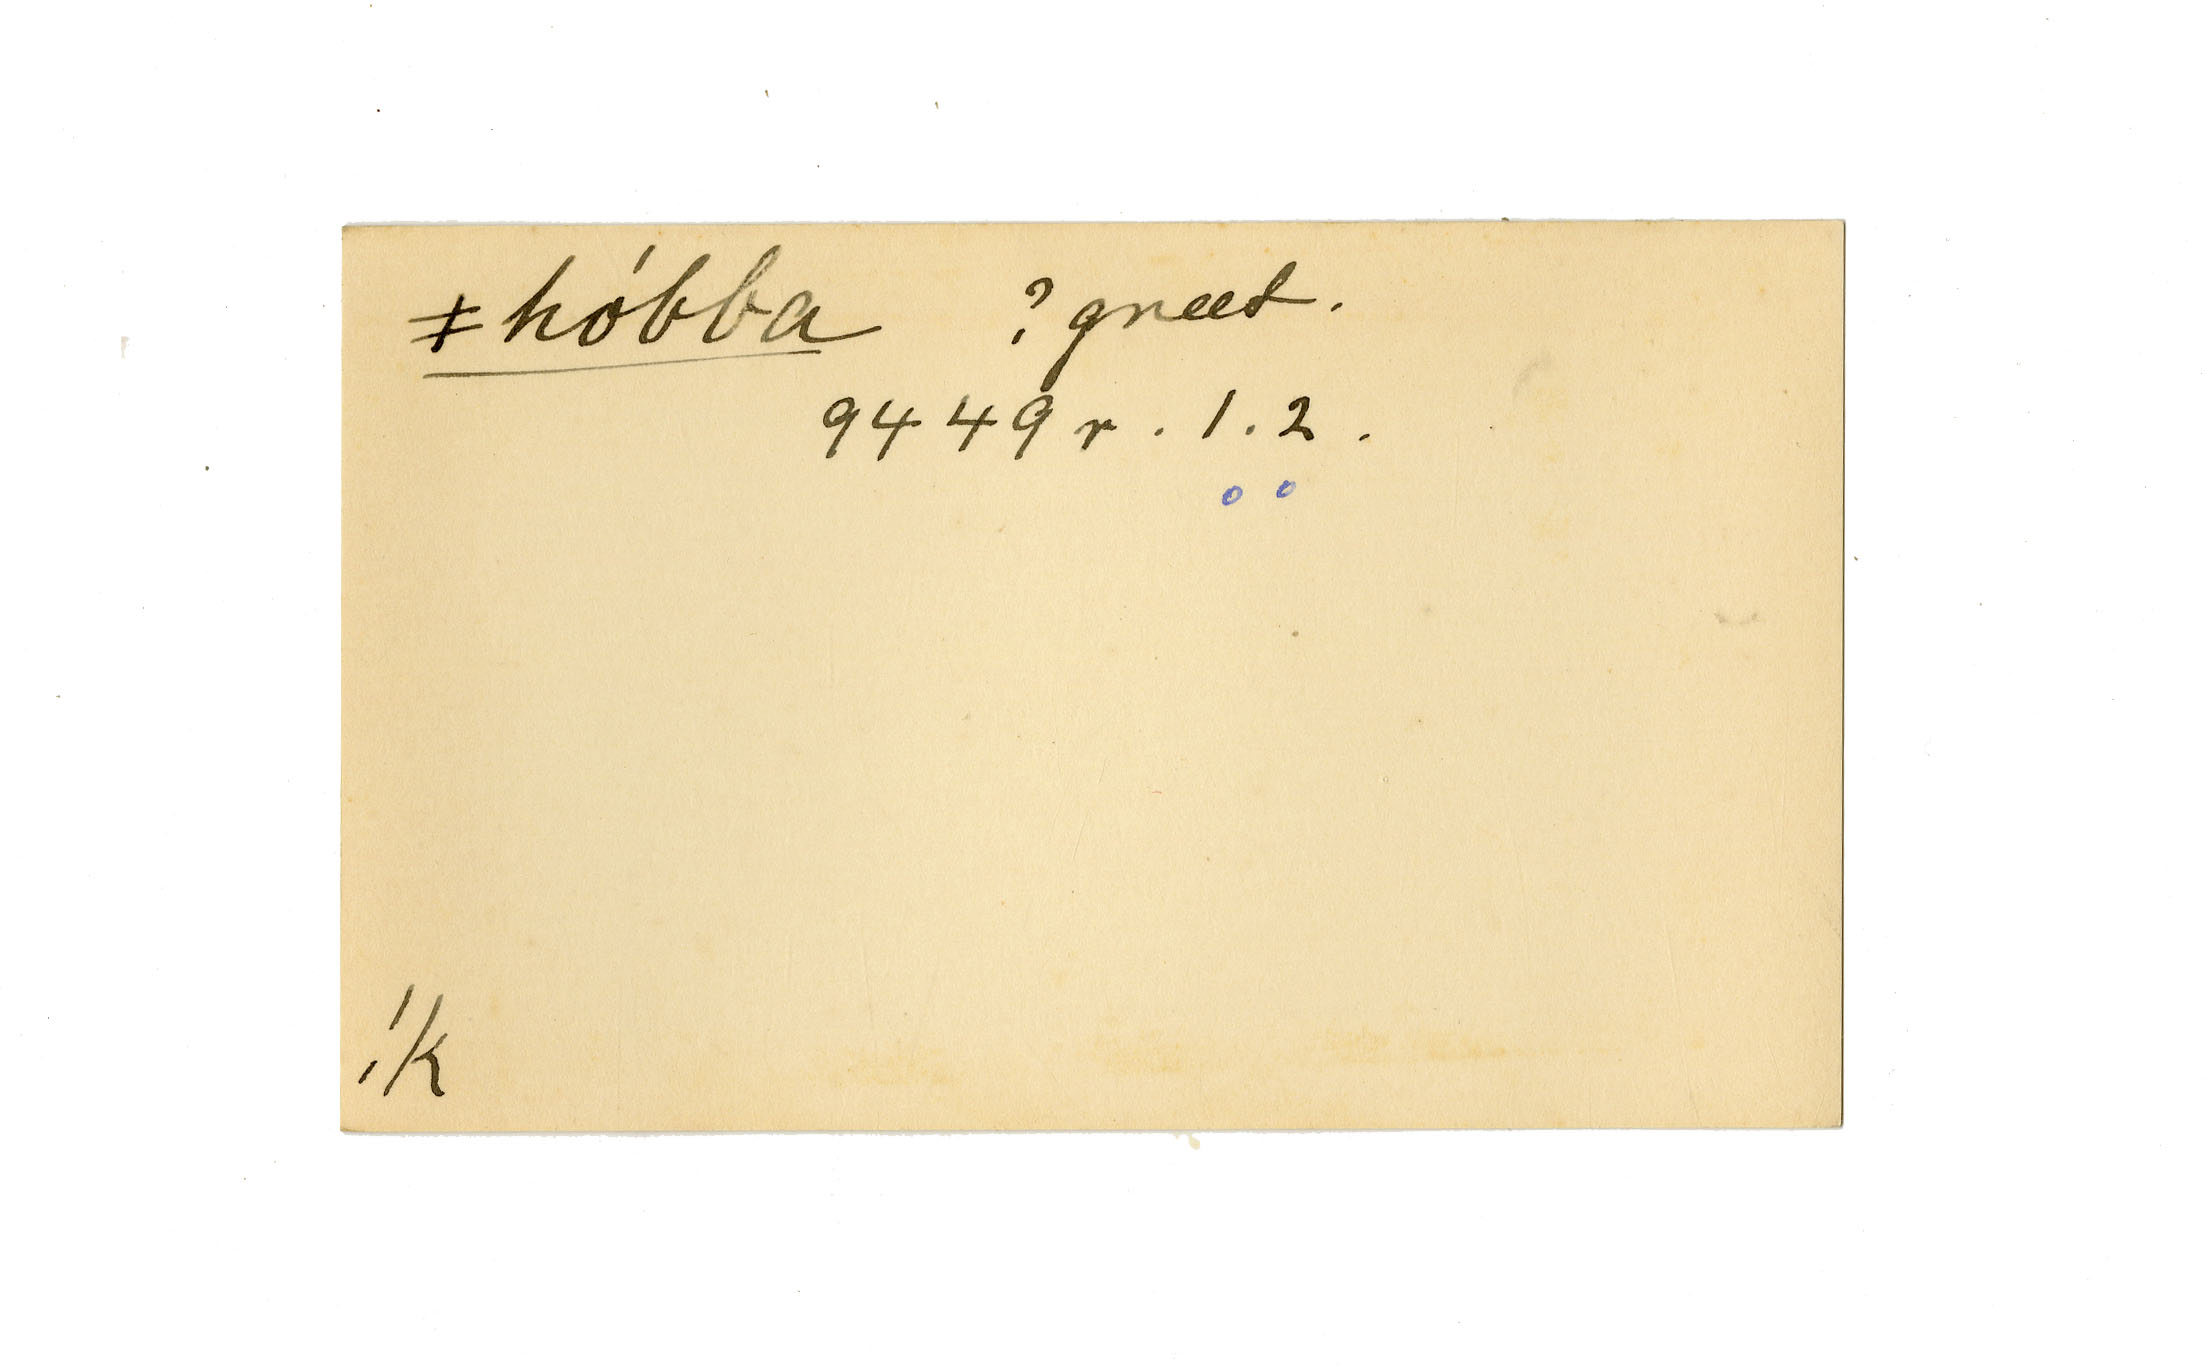 ǂhóbba ? greet.
9449 r. 1. 2.
!k